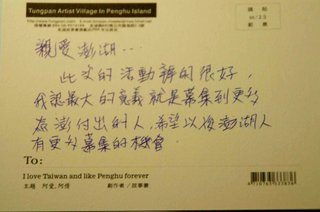 Tungpan Artist Village in Penghu Island
親愛澎湖…
此次的活動辦的很好,
我認最大的意義就是募集到更多
為澎付出的人,希望以後澎湖人
有更多募集的機會
To:
I love Taiwan and like Penghu forever
主題 阿愛,阿倩
創作者/